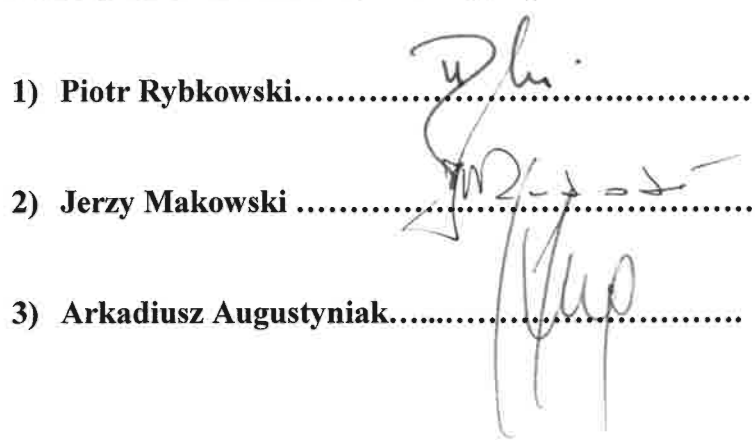 1) Piotr Rybkowski……………………………………
2) Jerzy Makowski ……………………………………
3) Arkadiusz Augustyniak…...……………………….